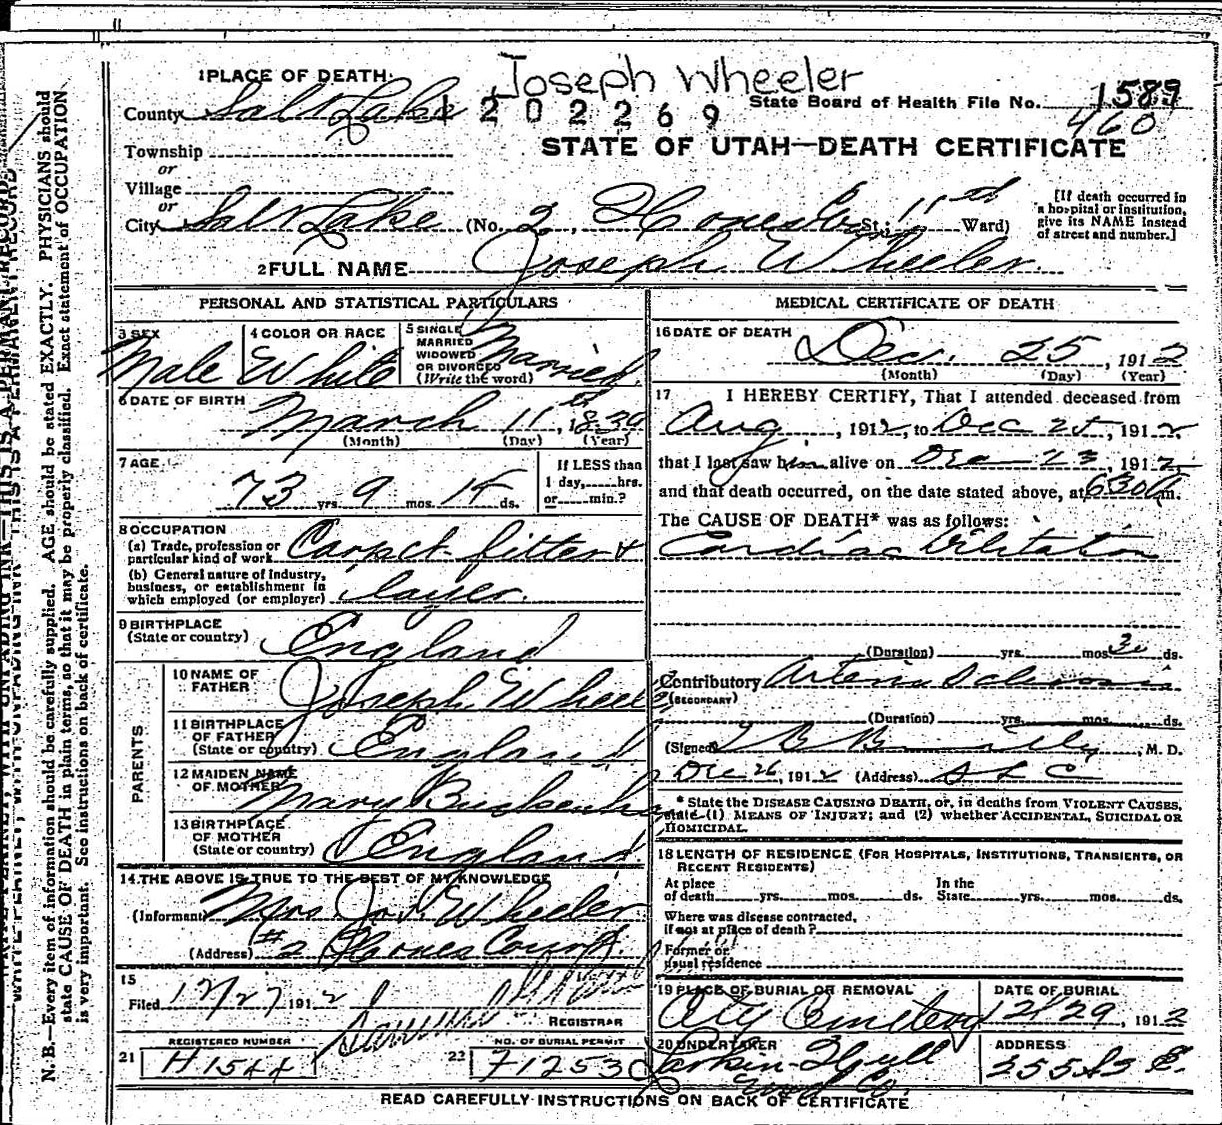 Joseph Wheeler
1 PLACE OF DEATH
County Salt Lake 1202269 State Board of Health File No. 1589
460
STATE OF UTAH—DEATH CERTIFICATE
Township
or
Village
or
City Salt Lake (No. 2, St.; 11th Ward)
[If death occurred in a hospital or institution, give its NAME instead of street and number.]
2 FULL NAME Joseph Wheeler
PERSONAL AND STATISTICAL PARTICULARS
3 SEX
Male
4 COLOR OR RACE
White
5 SINGLE
MARRIED
WIDOWED
OR DIVORCED
(Write the word)
Married
6 DATE OF BIRTH
March 11th, 1839
(Month) (Day) (Year)
7 AGE
73 yrs. 9 mos. 14 ds.
If LESS than
1 day, hrs.
or min.?
8 OCCUPATION
(a) Trade, profession or
particular kind of work Carpet fitter &
(b) General nature of industry,
business, or establishment in
which employed (or employer) layer.
9 BIRTHPLACE
(State or country) England
PARENTS
10 NAME OF
FATHER Joseph Wheeler
11 BIRTHPLACE
OF FATHER
(State or country) England
12 MAIDEN NAME
OF MOTHER Mary
13 BIRTHPLACE
OF MOTHER
(State or country) England
14 THE ABOVE IS TRUE TO THE BEST OF MY KNOWLEDGE
(Informant) Mrs Jos Wheeler
(Address) #2 Court
15
Filed 12/27 1912
REGISTRAR
REGISTERED NUMBER
21 H1544
NO. OF BURIAL PERMIT
22 F12530
MEDICAL CERTIFICATE OF DEATH
16 DATE OF DEATH
Dec. 25, 1912
(Month) (Day) (Year)
17 I HEREBY CERTIFY, That I attended deceased from
Aug, 1912, to Dec 25, 1912
that I last saw him alive on Dec 23, 1912
and that death occurred, on the date stated above, at 630 a m.
The CAUSE OF DEATH* was as follows:
Cardiac Dilitation
(Duration) yrs. mos. 30 ds.
Contributory Arterio Sclerosis
(SECONDARY)
(Duration) yrs. mos. ds.
(Signed), M. D.
Dec 26, 1912 (Address) S L C
* State the DISEASE CAUSING DEATH, or, in deaths from VIOLENT CAUSES,
state (1) MEANS OF INJURY; and (2) whether ACCIDENTAL, SUICIDAL OR
HOMICIDAL.
18 LENGTH OF RESIDENCE (FOR HOSPITALS, INSTITUTIONS, TRANSIENTS, OR
RECENT RESIDENTS)
At place In the
of death yrs. mos. ds. State yrs. mos. ds.
Where was disease contracted,
if not at place of death?
Former or
usual residence
19 PLACE OF BURIAL OR REMOVAL
City Cemetery
DATE OF BURIAL
12/29, 1912
20 UNDERTAKER
Larkin-Hull
Und Co.
ADDRESS
READ CAREFULLY INSTRUCTIONS ON BACK OF CERTIFICATE
WRITE PLAINLY, WITH UNFADING INK—THIS IS A PERMANENT RECORD
N. B.—Every item of information should be carefully supplied. AGE should be stated EXACTLY. PHYSICIANS should
state CAUSE OF DEATH in plain terms, so that it may be properly classified. Exact statement of OCCUPATION
is very important. See instructions on back of certificate.